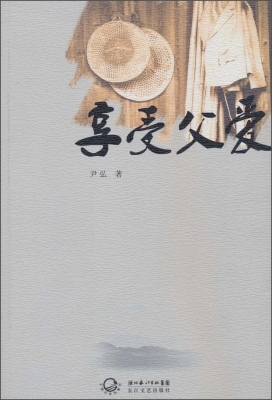 享受父爱
尹弘 著
湖北长江出版集团
长江文艺出版社